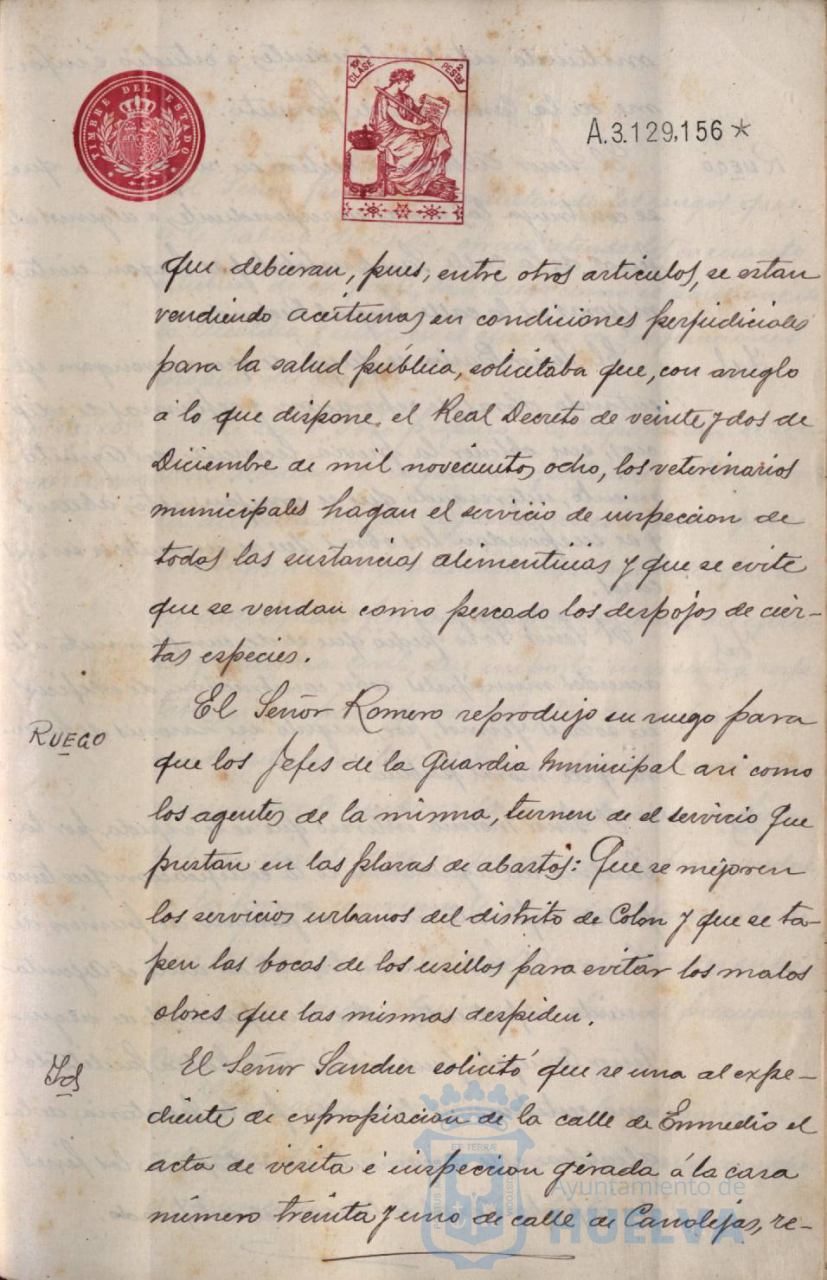 TIMBRE DEL ESTADO
10ª CLASE 2 PESTAS
A.3.129,156*
que debieran, pues, entre otros articulos, se estan
vendiendo aceitunas en condiciones perjudiciales
para la salud pública, solicitaba que, con arreglo
á lo que dispone el Real Decreto de veinte y dos de
Diciembre de mil novecientos ocho, los veterinarios
municipales hagan el servicio de inspeccion de
todas las sustancias alimenticias y que se evite
que se vendan como pescado los despojos de cier-
tas especies.
RUEGO
El Señor Romero reprodujo su ruego para
que los Jefes de la Guardia Municipal asi como
los agentes de la misma, turnen de el servicio que
prestan en las plazas de abastos: Que se mejoren
los servicios urbanos del distrito de Colon y que se ta-
pen las bocas de los usillos para evitar los malos
olores que las mismas despiden.
Id
El Señor Sanchez solicitó que se una al expe-
diente de expropiacion de la calle de Enmedio el
acta de visita é inspeccion girada á la casa
número treinta y uno de calle de Canalejas, re-
Ayuntamiento de
HUELVA